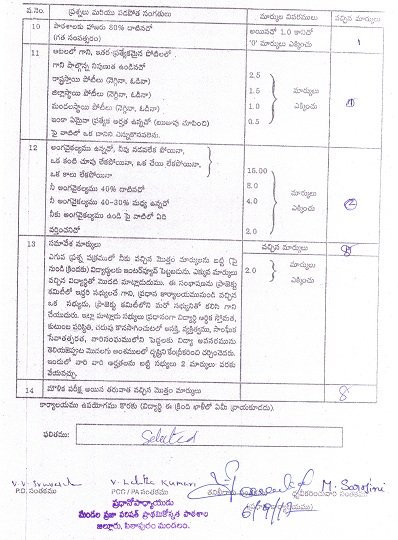 వ.నెం. ప్రశ్నలు మరియు సదపోత సంగతులు మార్కుల వివరములు వచ్చిన మార్కులు
10 పాఠశాలకు హాజరు 80% దాటినదో అయినచో 1.0 కానిచో 1
(గత సంవత్సరం) '0' మార్కులు ఎక్కించు
11 ఆటలలో గాని, ఇతర ప్రత్యేకమైన పోటీలలో
గాని పాల్గొన్న నిపుణత ఉండినచో 2.5
రాష్ట్రస్థాయి పోటీలు (నెగ్గినా, ఓడినా) 1.5 మార్కులు
జిల్లాస్థాయి పోటీలు (నెగ్గినా, ఓడినా) 1.0 ఎక్కించు
మండలస్థాయి పోటీలు (నెగ్గినా, ఓడినా) 0.5
ఇంకా ఏమైనా ప్రత్యేక అర్హత ఉన్నచో (ఋజువు చూపించి)
పై వాటిలో ఒక దానిని ఎన్నుకొనవలెను.
12 అంగవైకల్యము ఉన్నచో, నీవు నడవలేక పోయినా,
ఒక కంటి చూపు లేకపోయినా, ఒక చేయి లేకపోయినా,
ఒక కాలు లేకపోయినా 15.00
నీ అంగవైకల్యము 40% దాటినచో 8.0 మార్కులు
నీ అంగవైకల్యము 40-30% మధ్య ఉన్నచో 4.0 ఎక్కించు 2
నీకు అంగవైకల్యము ఉండి పై వాటిలో ఏది
వర్తించనిచో 2.0
13 సమావేశ మార్కులు వచ్చిన మార్కులు
ఎగువ ప్రశ్న పత్రములో నీకు వచ్చిన మొత్తం మార్కులను బట్టి (పై
నుండి క్రిందకు) విద్యార్థులకు ఇంటర్వ్యూకి పెట్టబడును. ఎక్కువ మార్కులు 2.0 మార్కులు
వచ్చిన విద్యార్థితో మొదట మాట్లాడుదుము. ఈ సంభాషణను ప్రాజెక్టు ఎక్కించు
కమిటీలో ఇద్దరి సభ్యులచే గాని, ప్రధాన కార్యాలయమునుండి వచ్చిన
ఒక సభ్యుడు, ప్రాజెక్టు కమిటీలోని మరో సభ్యునితో కలిసి గాని
చేయుదురు. ఇలా మాట్లాడు సభ్యులు ప్రధానంగా విద్యార్థి ఆర్థిక స్తోమత,
కుటుంబ పరిస్థితి, చదువు కొనసాగించుటలో ఆసక్తి, వ్యక్తిత్వము, సాంఘిక
సేవాతత్పరత, వారి పెద్దలకు విద్య అవసరమును
తెలియజెప్పుట మొదలగు అంశములలో దృష్టిని కేంద్రీకరించి చర్చించెదరు.
ఇందులో వారి వారి అర్హతలను బట్టి సభ్యులు 2 మార్కులు వరకు
వేయవచ్చు.
14 మౌఖిక పరీక్ష అయిన తరువాత వచ్చిన మొత్తం మార్కులు 8
కార్యాలయము ఉపయోగము కొరకు (విద్యార్థి ఈ క్రింది ఖాళీలో ఏమీ వ్రాయకూడదు).
ఫలితము: Selected
V. Lalitha Kumari M. Sarojini
P.D. సంతకము PCC / PA సంతకము
ప్రధానోపాధ్యాయుడు
మండల ప్రజా పరిషత్ ప్రాథమికోన్నత పాఠశాల
జల్లూరు, పిఠాపురం మండలం.